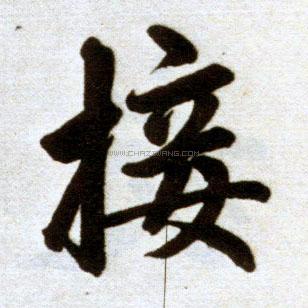 接
WWW.CHAZIWANG.COM